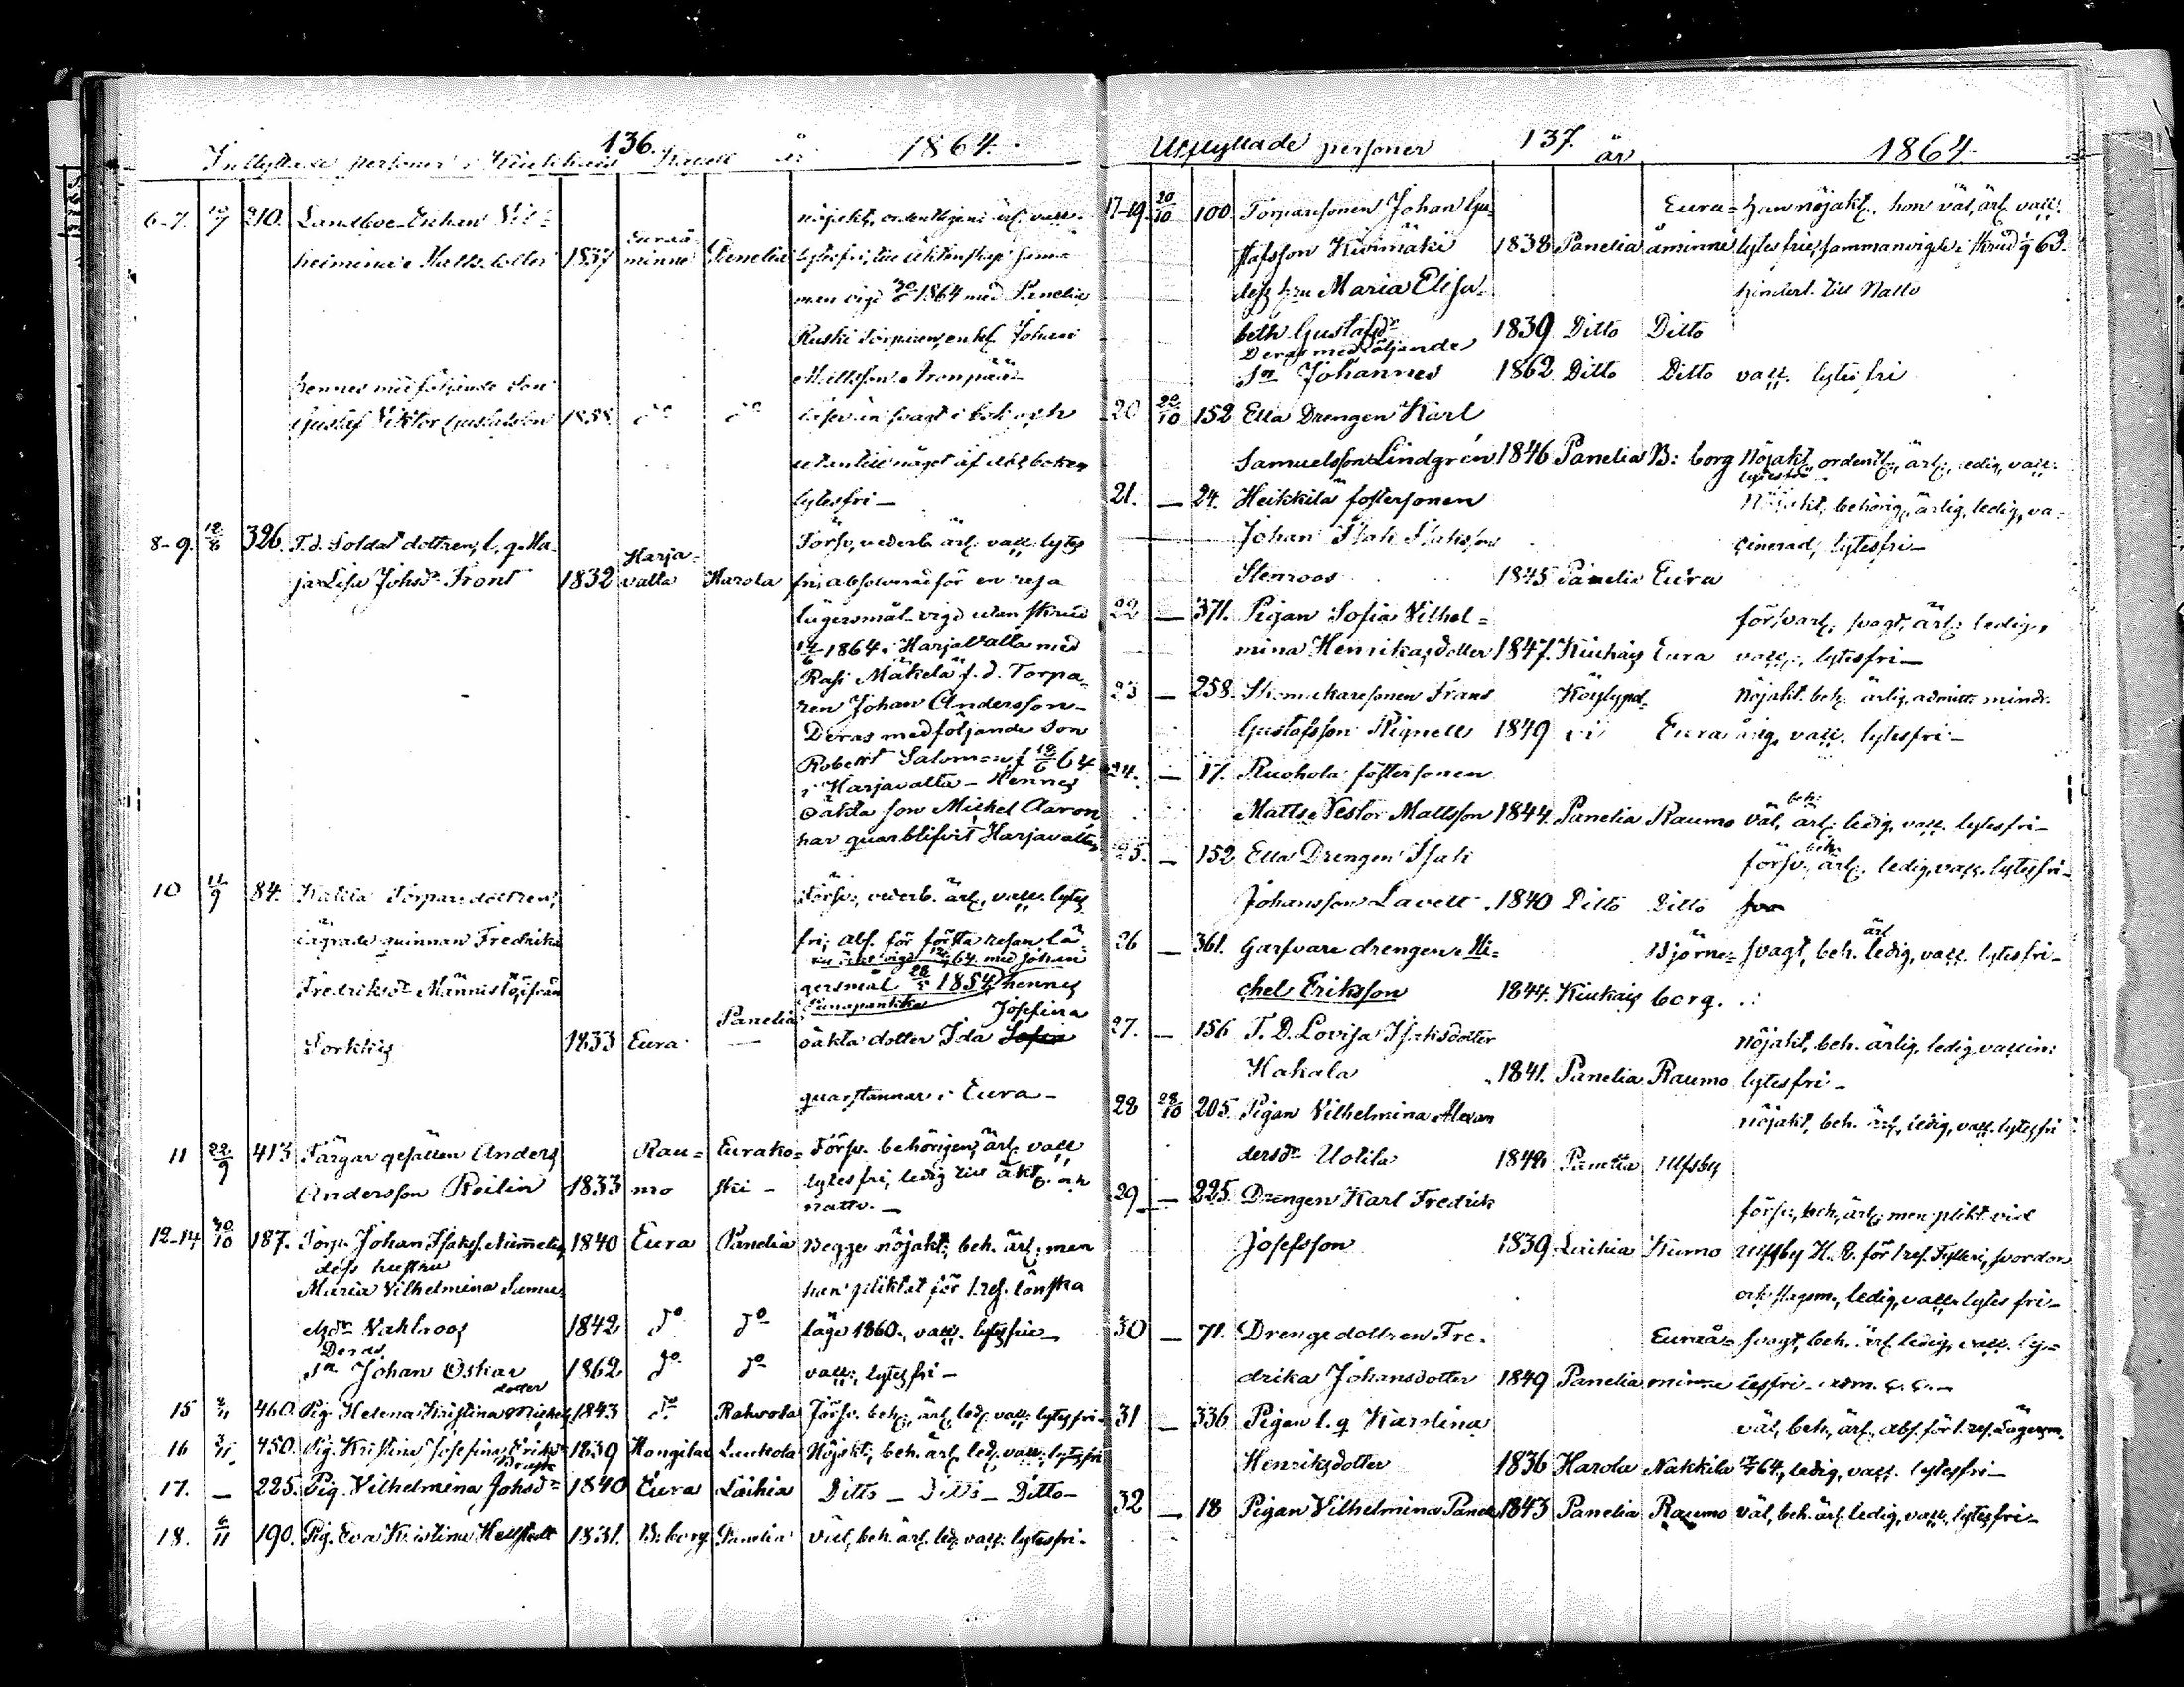 136.
Inflyttade personer i Kiukkais Kapell år 1864.
6-7. 12/7 210. Landboe Enkan Vil-
helmina Matts dotter 1837 Euraå-
minne Panelia
nöjakt, ordentligen, ärl. vacc.
lytesfri, till äktenskap samma-
man vigd 30/6 1864 med Panelia
Ruski Torparen, enkl. Johan
Mattsson
hennes medföljande son
Gustaf Viktor Gustafsson 1858. do do
läser än svagt i bok och
utantill något af abc boken
lytesfri —
8-9. 12/8 326. F.d. Soldat dottren, l. q. Ma-
ja Lisa Johsdr Front 1832 Harja-
valta Harola
Försv, vederb. ärl. vacc. lytes
fri, absolverad för en resa
lägersmål vigd utan skrud
12/6 1864 i Harjavalta med
Rasi Mäkelä f. d. Torpa-
ren Johan Andersson —
Deras medföljande Son
Robert Salomon, f 18/6 64.
i Harjavalta — Hennes
oäkta son Michel Aaron
har quarblifvit i Harjavalta
10 11/9 84. Torpare dottren,
lägrade quinnan Fredrika
Fredriksdr Männistö, ifrån
Sorkkis 1833 Eura Panelia —
Försv., vederb. ärl., vacc. lytes
fri; abs. för första resan lä-
64 med Johan
gersmål 1854 hennes
oäkta dotter Ida Sofia Josefina
quarstannar i Eura —
11 22/9 413 Färgar gesällen Anders
Andersson Reilin 1833 Rau-
mo Eurako-
ski -
Försv. behörigen, ärl. vacc
lytesfri, ledig till äkt. och
nattv. —
12-14 30/10 187. Torp. Johan Isaksf. Nummelin 1840 Eura Panelia Begge nöjakt; beh. ärl; men
dess hustru
Maria Vilhelmina Samue- han pliktat för 1 res. lönska
elsdr Vahlroos 1842 do do läge 1860, vacc. lytesfri —
Deras
Sn Johan Oskar 1862 do do vacc., lytesfri —
15 2/11 460. Pig. Helena Kristina Michels dotter 1843 do Rahvola Försv. beh., ärl. led. vacc. lytesfri
16 3/11 450. Pig. Kristina Josefina Eriksd 1839 Hongilax Luukola Nöjakt; beh. ärl. led. vacc. lytesfri
17. — 225. Pig. Vilhelmina Johsdr 1840 Eura Laihia Ditto — Ditto — Ditto —
18. 6/11 190. Pig. Eva Kristina Hellstedt 1831. B:borg Panelia väl, beh. ärl. led. vacc. lytesfri.
Utflyttade personer 137. år 1864
17-19 20/10 100. Torparesonen Johan Gu-
stafsson Kinmäki 1838 Panelia Eura-
åminne han nöjakt., hon väl, ärl. vacc.
lytesfrie, sammanvigde i skrud 63.
hinderl. till Nattv
dess hru Maria Elisa-
beth Gustafsdr 1839 Ditto Ditto
Deras medföljande
Sn Johannes 1862 Ditto Ditto vacc. lytesfri
20 22/10 152 Ella Drengen Karl
Samuelsson Lindgrén 1846 Panelia B:borg Nöjakt, ordentl., ärl., ledig, vacc.
lytesfri —
21. — 24. Heikkilä fostersonen
Johan Isak Isaksson
Stenroos 1845 Panelia Eura
Nöjakt, behörig, ärlig, ledig, va-
cinerad, lytesfri —
22 — 371. Pigan Sofia Vilhel-
mina Henriksdotter 1847. Kiukais Eura försvarl; svagt, ärl; ledig,
vacc., lytesfri —
23 — 258. Skomakaresonen Frans
Gustafsson Rignell 1849 Köylypol- Eura Nöjakt. beh. ärlig, admitt. mindr.
årig, vacc. lytesfri —
24. — 17. Ruohola fostersonen
Matts Nestor Mattsson 1844. Panelia Raumo väl, beh: ärl; ledig, vacc. lytesfri —
25. — 152 Ella Drengen Isak
Johansson Lavell 1840 Ditto Ditto försv., beh. ärl. ledig, vacc. lytesfri —
26 — 361. Garfvare drengen Mi-
chel Eriksson 1844. Kiukais Björne-
borg. svagt, beh. ärl ledig, vacc. lytesfri —
27. — 156 T. D. Lovisa Isaksdotter
Hakala 1841. Panelia Raumo nöjakt, beh. ärlig, ledig, vaccin:
lytesfri —
28 28/10 205. Pigan Vilhelmina Alexan
dersdr Uotila 1842 Panelia Ulfsby nöjakt, beh. ärl., ledig, vacc. lytesfri
29 — 225. Drengen Karl Fredrik
Josefsson 1839. Laihia Kumo försv., beh, ärl; men plikt. vid
Ulfsby H. R. för 1 res. Fylleri, svordom
och slagsm., ledig, vacc. lytesfri —
30 — 71. Drenge dottren Fre-
drika Johansdotter 1849 Panelia Euraå-
minne svagt, beh. ärl. ledig, vacc. ly-
tesfri —
31 — 336 Pigan l. q. Karolina
Henriksdotter 1836 Harola Nakkila väl, beh, ärl., abs. för 1. res. Lägersm.
64, ledig, vacc. lytesfri —
32 — 18 Pigan Vilhelmina 1843 Panelia Raumo väl, beh. ärl. ledig, vacc, lytesfri —